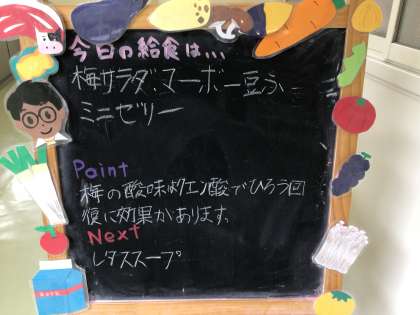 今日の給食は...
梅サラダ、マーボー豆ふ
ミニゼリー
Point
梅の酸味はクエン酸でひろう回
復に効果があります。
Next
レタススープ